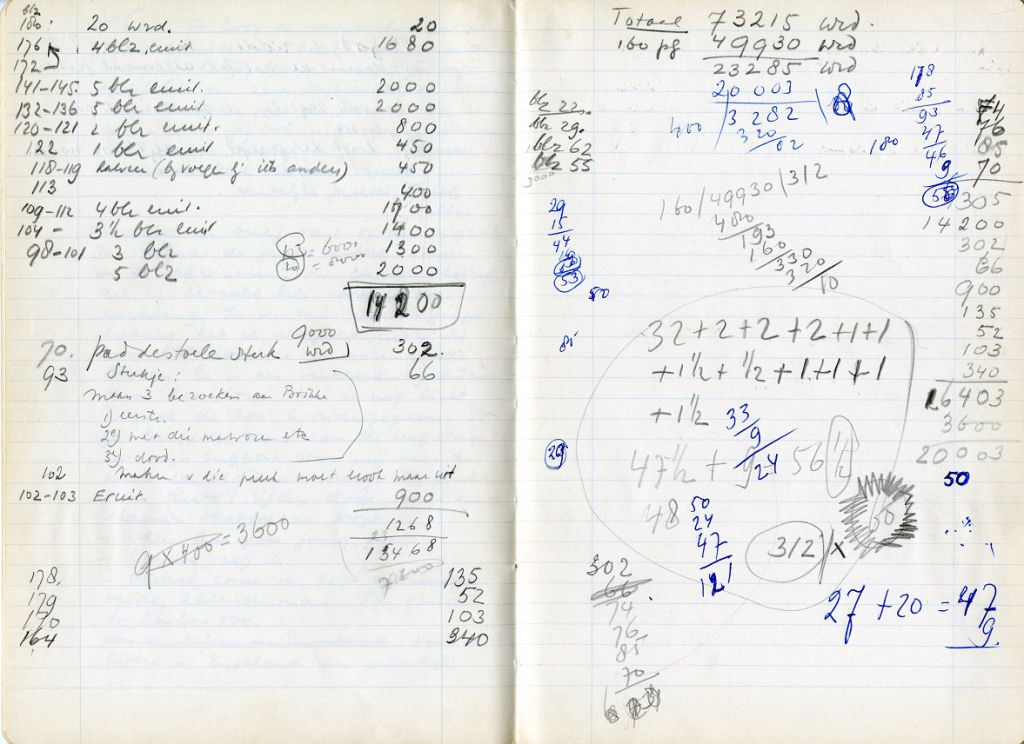 blz
186. 20 wrd. 20
176 4 blz. eruit 1680
172
141-145 5 blz eruit. 2000
132-136 5 blz eruit. 2000
120-121 2 blz eruit. 800
122 1 blz eruit 450
118-119 450
113 400
109-112 4 blz eruit. 1700
104- 3½ blz eruit 1400
98-101 3 blz 1300
5 blz 2000
14200
9000
70. paddestoele stuk wrd 302.
93 Stukje: 66
maar 3 bezoeken aan
1)
2e) met die etc
3e) dood.
102 maken v die moet
102-103 Eruit. 900
1268
13468
9 x 400 = 3600
178. 135
179 52
170 103
164 340
Totaal 73215 wrd.
160 pg 49930 wrd
23285 wrd
20 003
400 / 3282
320
82
blz 22.
blz 29.
blz 62
blz 55
178
85
93
47
180 46
9
74
76
85
70
305
14200
302
66
900
135
52
103
340
16403
3600
20003
50
160/49930/312
480
193
160
330
320
10
29
15
44
53
50
85
29
32+2+2+2+1+1
+1½+½+1+1+1
+1½
33
9
24
47½ + 9 56½
48
50
24
47
121
312 x
50
27 + 20 = 47
9.
302
66
74
76
85
70